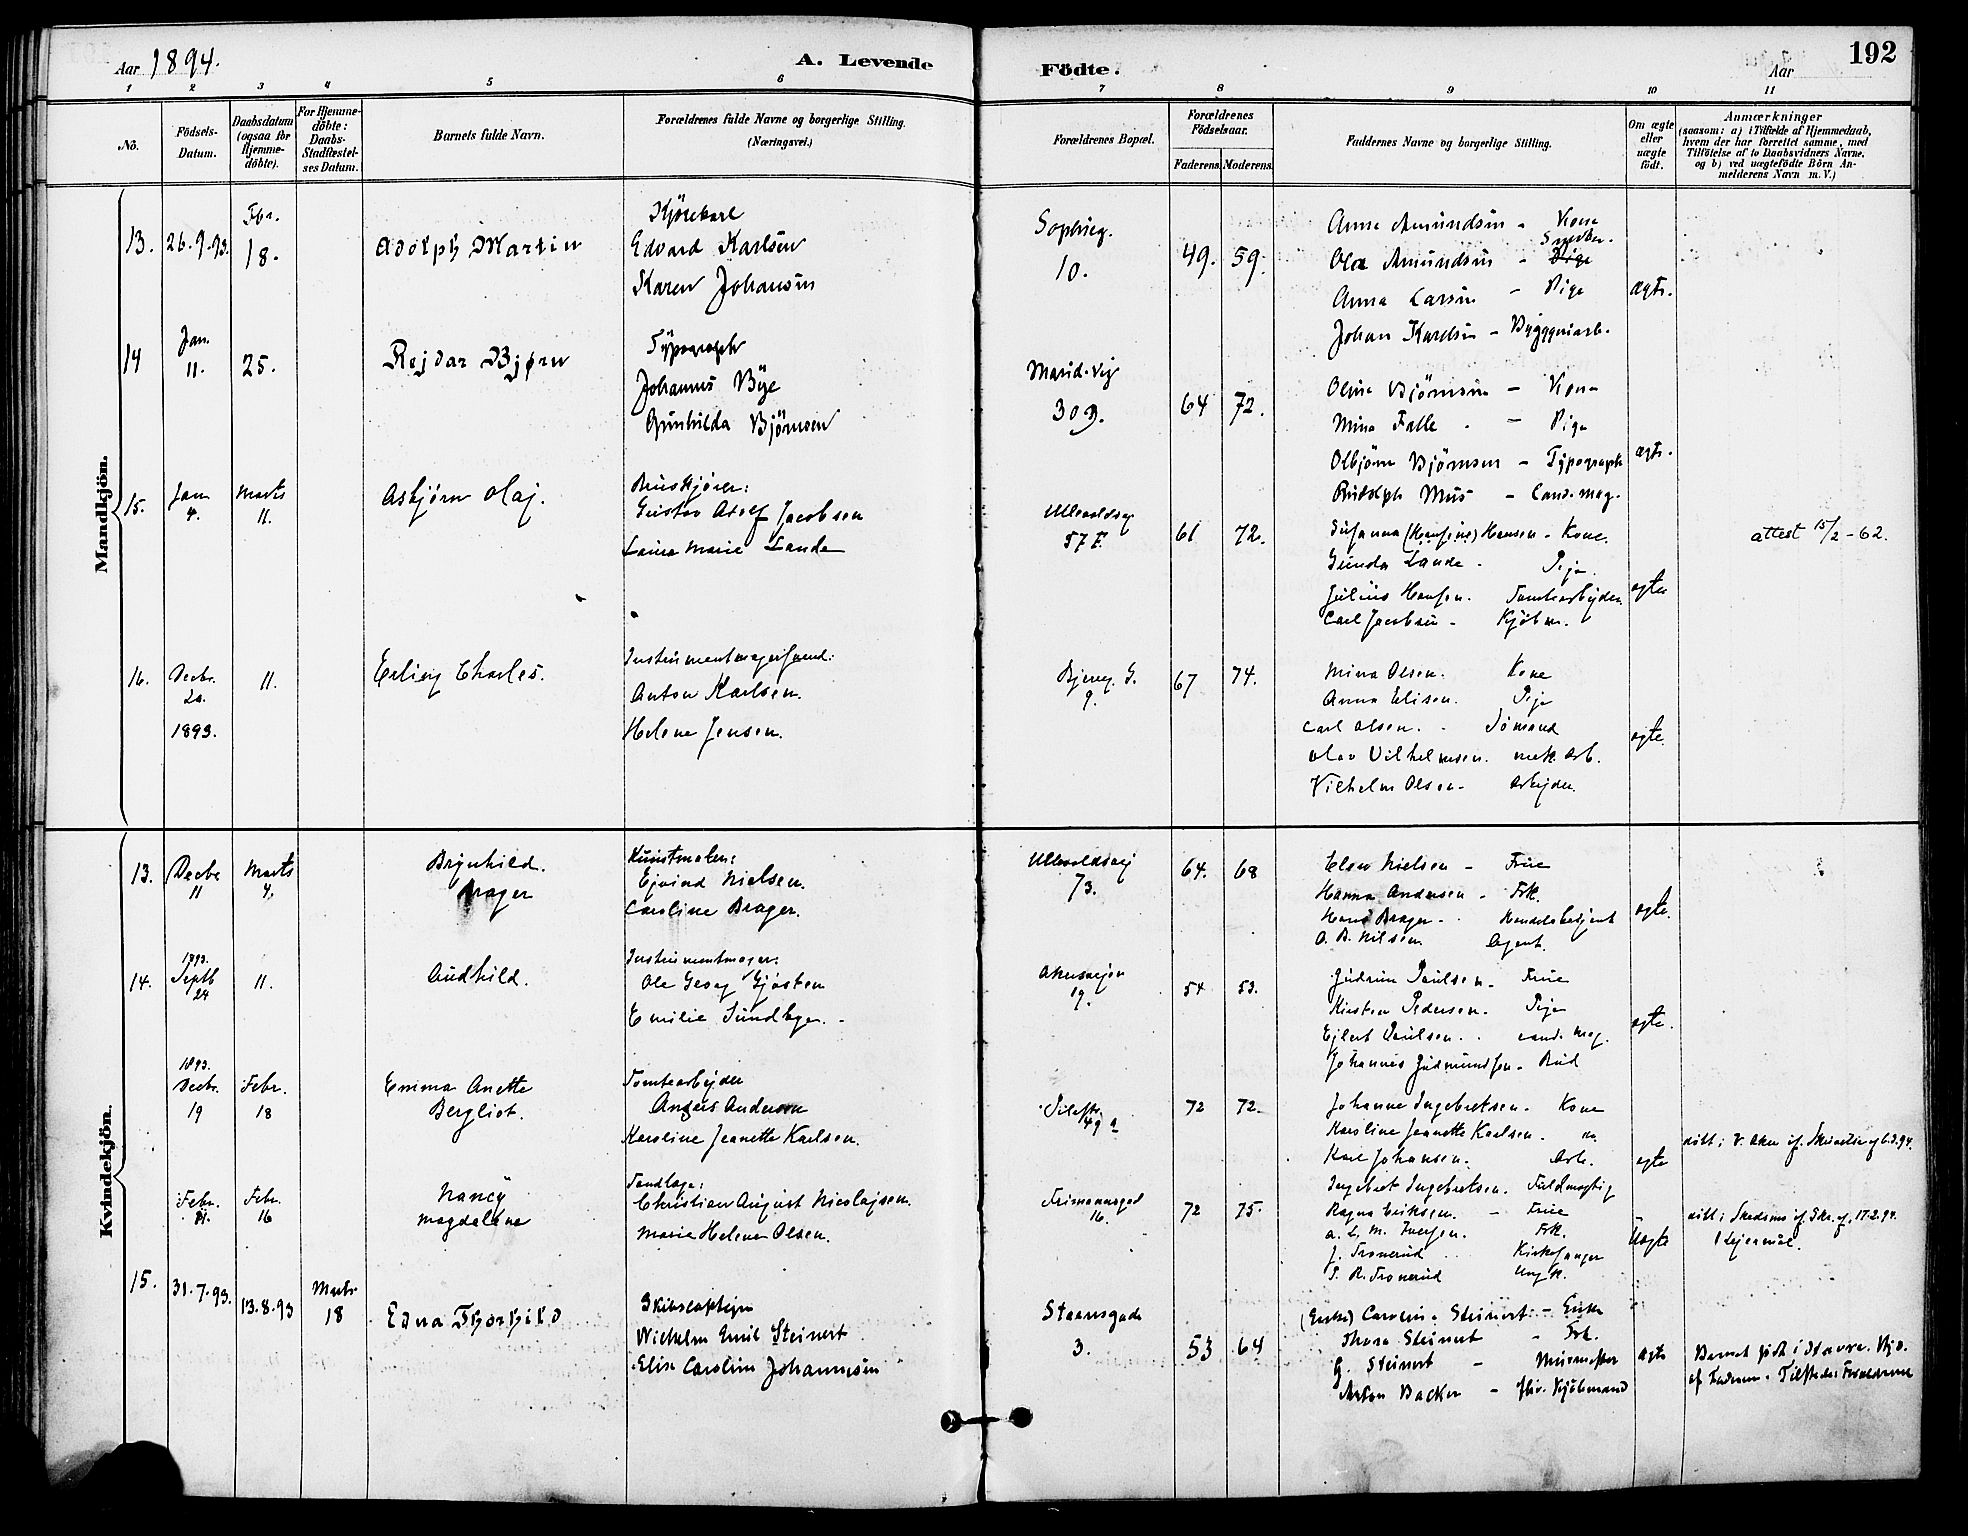 Aar 1894.
A. Levende Födte.
Aar
192
1 2 3 4 5 6 7 8 9 10 11
Nô.
Födsels-Datum.
Daabsdatum (ogsaa for Hjemme-döbte).
For Hjemme-döbte: Daabs-Stadfæstel-ses Datum.
Barnets fulde Navn.
Forældrenes fulde Navne og borgerlige Stilling. (Næringsvei.)
Forældrenes Bopæl.
Forældrenes Födselsaar.
Faderens. Moderens.
Faddernes Navne og borgerlige Stilling.
Om ægte eller uægte födt.
Anmærkninger
(saasom: a) i Tilfælde af Hjemmedaab, hvem der har forrettet samme, med Tilföielse af to Daabsvidners Navne, og b) ved uægtefödte Börn An-melderens Navn m. V.)
Mandkjön.
13. 26.9.93. Fbr. 18. Adolph Martin
Kjörekarl
Edvard Karlsen
Karen Johansen
Sophieg. 10. 49. 59.
Anna Amundsen - Kone
Ole Amundsen - Snedker.
Anna Larsen - Pige
Johan Karlsen - Byggniarb.
ægte.
14 Jan. 11. 25. Rejdar Bjørn
Typograph
Johannes Bye
Gunhilda Björnsen
Marid.vej 309. 64 72.
Oline Björnsen - Kone
Mina Falle - Pige
Olbjörn Björnsen - Typograph
Rudolph Mus - Cand.mag.
ægte.
15. Jan 4. Marts 11. Asbjørn Olaf.
Gustav Adolf Jacobsen
Laura Marie Lande
Ullevoldsvej 57 F. 61 72.
Susanna (Hansine) Hansen - Kone.
Gunda Lande - Pige.
Julius Hansen. Tomtearbejder.
Carl Jacobsen - Kjöbm.
ægte
attest 15/2 - 62.
16. Decbr. 20. 1893. 11. Erling Charles.
Instrumentmagersvend:
Anton Karlsen.
Helene Jensen.
Bjerreg. G. 9. 67 74.
Mina Olsen. Kone
Anna Elisen. Pige
Carl Olsen. Sömand
Olav Vilhelmsen. mek. Arb.
Vilhelm Olsen - Arbejder.
ægte.
Kvindekjön.
13. Decbr 11 Marts 4. Brynhild. Brager
Kunstmaler:
Ejvind Nielsen.
Caroline Brager.
Ullevoldsvej 73. 64. 68
Elen Nielsen - Frue
Hanna Andersen - Frk.
Hans Brager - Handelsbetjent
O. B. Nilsen. Agent.
ægte.
14. 1893. Septb 24 11. Audhild.
Instrumentmager:
Ole Georg Gjösten
Emilie Sundbye. -
Akersvejen 19. 54 53.
Gudrun Paulsen. Frue
Kirsten Pedersen. Pige
Ejlert Paulsen. cand. mag.
Johannes Gudmundsen. Bud
ægte.
1893. Decbr. 19 Febr. 18 Emma Anette Bergliot.
Tomtearbejder
Anders Andersen
Karoline Jeanette Karlsen.
Pilestr. 49 a 72 72.
Johanne Ingebretsen. Kone
Karoline Jeanette Karlsen. do.
Karl Johansen. Arb.
Ingebret Ingebretsen. Fuldmægtig
ægte
döbt i V. Aker if. Skrivelse af 6.3.94.
Febr. Febr. 16 Nancy Magdalene
Tandlæge:
Christian August Nicolajsen.
Marie Helene Olsen.
Frimannsgad 16. 72 75.
Ragna Eriksen. - Frue
A. L. M. Iversen. Frk.
J. Tronerud Kirkesanger
T. R. Tronerud Ungk.
Uægte
döbt i Skedsmo if. Skr. af 17.2.94.
1 Lejermål.
15. 31.7.93. 13.8.93 Marts 18 Edna Thorhild
Skibscaptejn
Wilhelm Emil Steinert
Elise Caroline Johannesen
Steensgade 3. 53 64
(Enke) Caroline Steinert - Enke
Thora Steinert - Frk.
G. Steinert - Murmester
Anton Backer - Kjöbmand
ægte
Barnet födt i Stavre. Hjd. af Faderen. Tilstede: Forældrene